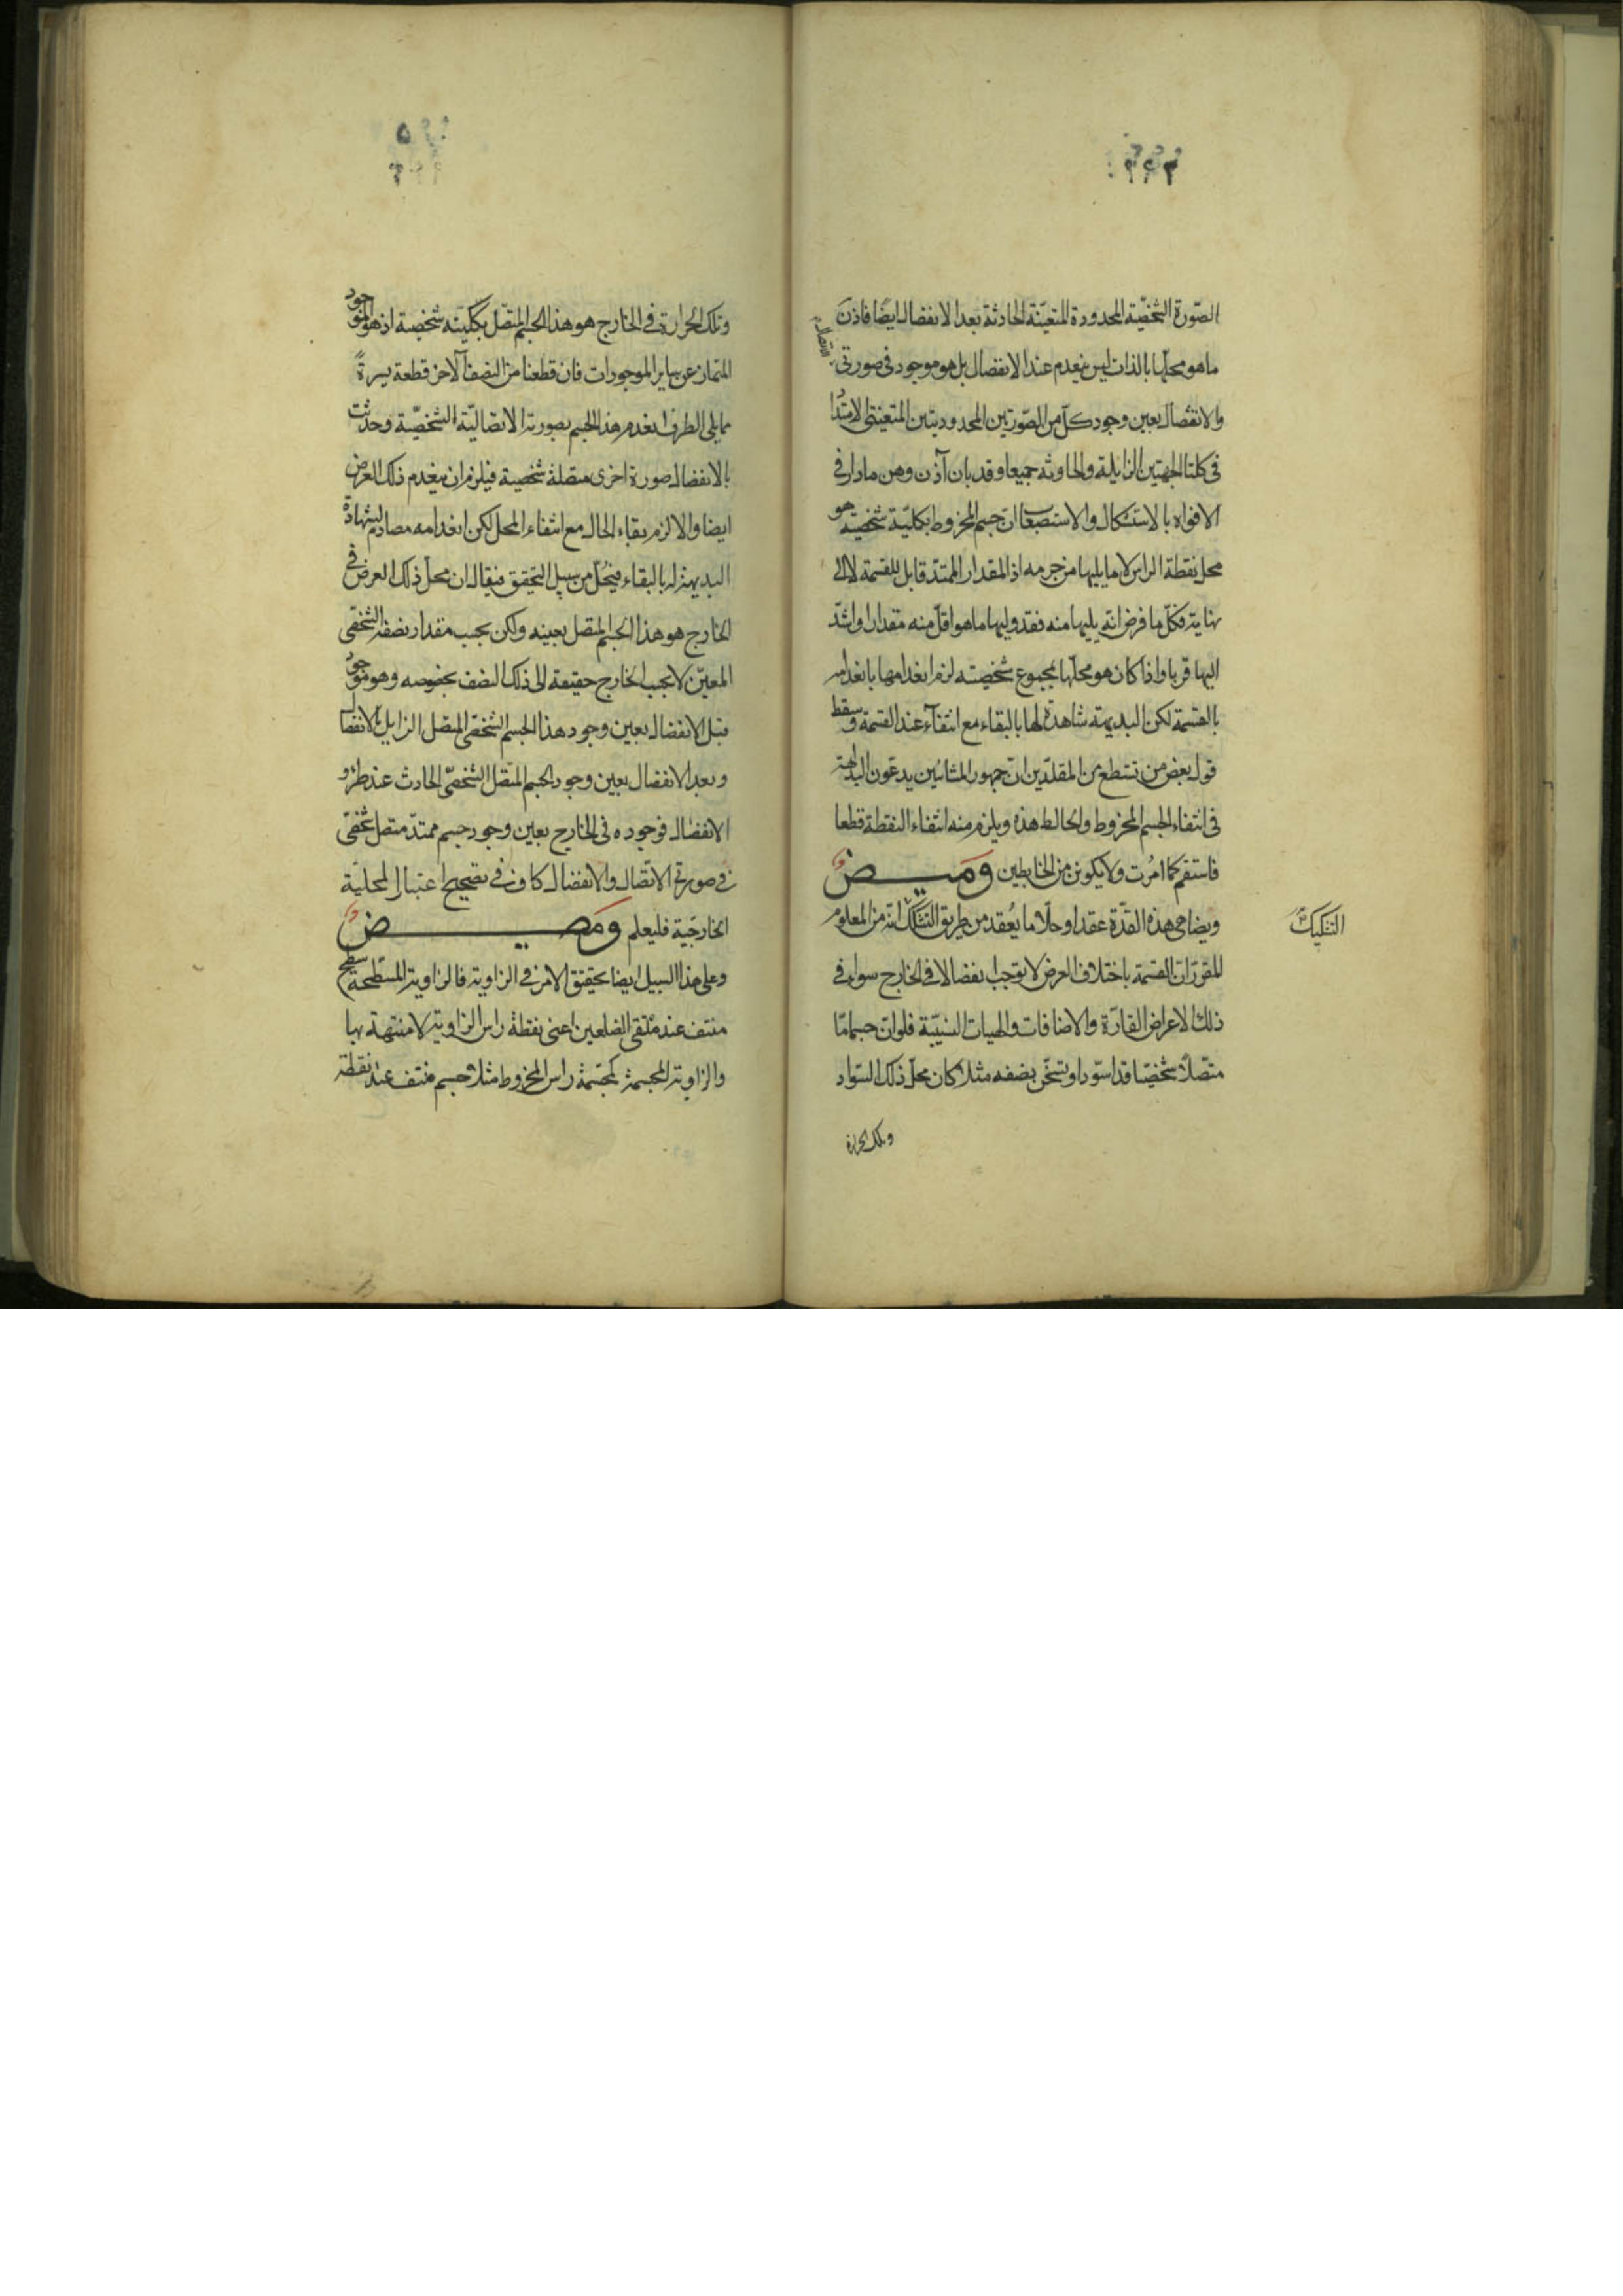 الصّورة الشخصّية المحدودة المتعيّنة الحادثة بعد الانفصال ايضا فاذن
ما هو محلها بالذات ليس ينعدم عند الانفصال بل هو موجود فى صورتى الاتصال
والانفصال بعين وجود كلّ من الصّورتين المحدودتين المتعينتى الامتداد
فى كلتا الجهتين الزايلة والحادثة جميعا وقد بان آذن وهن ما دار فى
الافواه بالاستشكال والاستصعاب ان جسم المخروط بكليّة شخصيته هو
محل نقطة الراس لا ما يليها من جرمه اذ المقدار الممتدّ قابل للقسمة لا الى
نهاية فكلّ ما فرض انه يليها منه فقد وليها ما هو اقلّ منه مقدارا واشدّ
اليها قربا واذا كان هو محلّها بمجموع شخصيته لزم انعدامها بانعدامه
بالقسمة لكن البديهته شاهدة لها بالبقاء مع انتفآء عند القسمة وسقط
قول بعض من تنطع من المقلّدين انّ جمهور المشائين يدعّون البداهة
فى انتفاء الجسم المخروط والحال هذه ويلزم منه انتفاء النقطة قطعا
فاستقم كما امُرت ولا يكونن من الخابطين ومـيـض
ويضاهى هذه العقدة عقدا وحلّا ما يُعقد من طريق التشكك انّه من المعلوم
التشكيك
المقرّر انّ القسمة باختلاف العرض لا توجب انفصالا فى الخارج سواء فى
ذلك الاعراض القارّة والاضافات والهيات النسبيّة فلو انّ جسما مّا
متّصلاً شخصيّا قد اسّود او تسخّن بنصفه مثلا كان محلّ ذلك السّواد
وتلك الحرارة
وتلك الحرارة فى الخارج هو هذا الجسم المتّصل بكليّته شخصية اذ هو الموجود
المتماز عن ساير الموجودات فان قطعنا من النصف الآخر قطعة يسيرةً
مما يلى الطرف انعدم هذا الجسم بصورته الاتصاليّة الشخصّية وحدثت
بالانفصال صورة اخرى متصلة شخصية فيلزم ان ينعدم ذلك العرض
ايضا والا لزم بقاء الحال مع انتفاء المحل لكن انعدامه مصادم لشهادة
البديهة له بالبقاء فيُحلّ من سبيل التحقق فيقال ان محلّ ذلك العرض فى
الخارج هو هذا الجسم المتصل بعينه ولكن بحسب مقدار نصفه الشخصّى
المعيّن لا بحسب الخارج حقيقة الى ذلك النصف بخصوصه وهو موجود
قبل الانفصال بعين وجود هذا الجسم الشخصّى المتصل الزايل بالانفصال
وبعد الانفصال بعين وجود الجسم المتصل الشخصّى الحادث عند طرؤ
الانفصال فوجوده فى الخارج بعين وجود جسم ممتدّ متصل شخصّى
فى صورتى الاتّصال والانفصال كاف فى تصحيح اعتبار المحليّة
الخارجّية فليعلم ومـيـض
وعلى هذا السبيل ايضا يحقّق الامر فى الزاوية فالزاوية المسّطحة سطح
منتف عند ملتقى الضلعين اعنى نقطة راس الزاوية لا منتهية بها
والزاوية المجسمة كمجسّمة راس المخروط مثلا جسم منتف عند نقطة